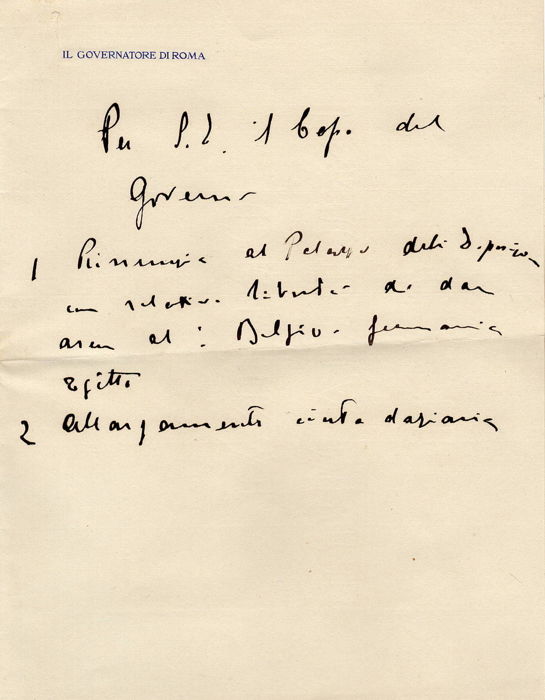 IL GOVERNATORE DI ROMA
Per S. E. il Capo del
Governo
1 Rinunzia al Palazzo delle Esposizion
con relativa libertà di dare
aree al: Belgio. Germania
Egitto
2 Allargamento cinta daziaria